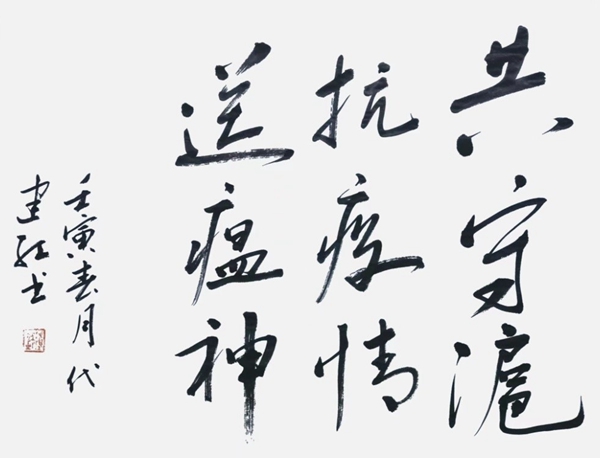 共守滬
抗疫情
送瘟神
壬寅春月代
建红书